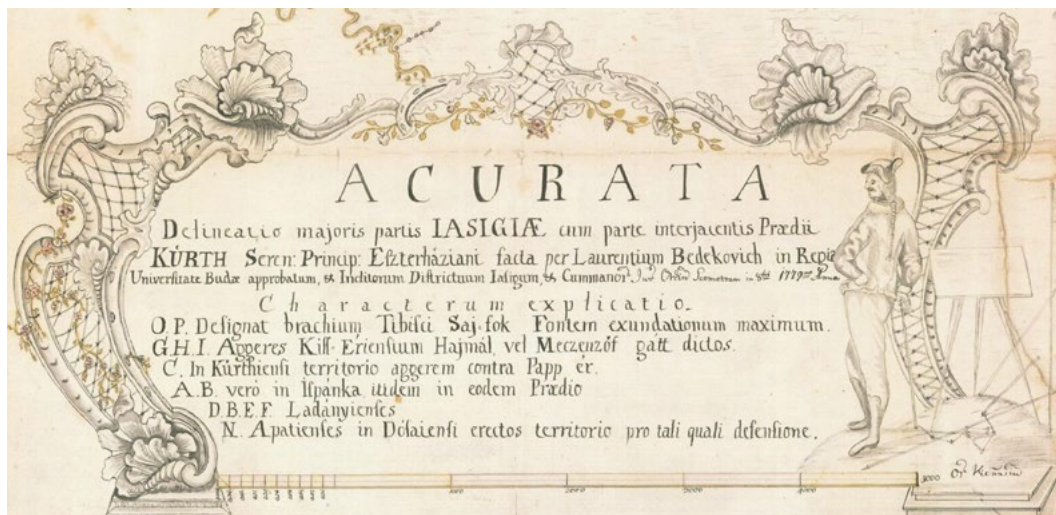 ACURATA
Delineatio majoris partis IASIGIÆ cum parte interjacentis Prædii
KÚRTH Seren: Princip: Eszterháziani facta per Laurentium Bedekovich in Regia
Universitate Budæ approbatum, & Inclitorum Districtuum Iasigum, & Cummanor. Jur. 1779
Characterum explicatio.
O.P. Designat brachium Tibisci Saj-fok Fontem exundationum maximum.
G.H.I. Aggeres Kiss-Eriensium Hajmál, vel Meczenzóf gátt dictos.
C. In Kürthiensi territorio aggerem contra Papp ér.
A.B vero in Ispánka itidem in eodem Prædio
D.B.E.F. Ladányienses
N. Apatienses in Dósaiensi erectos territorio pro tali quali defensione.
1000 2000 3000 4000 5000